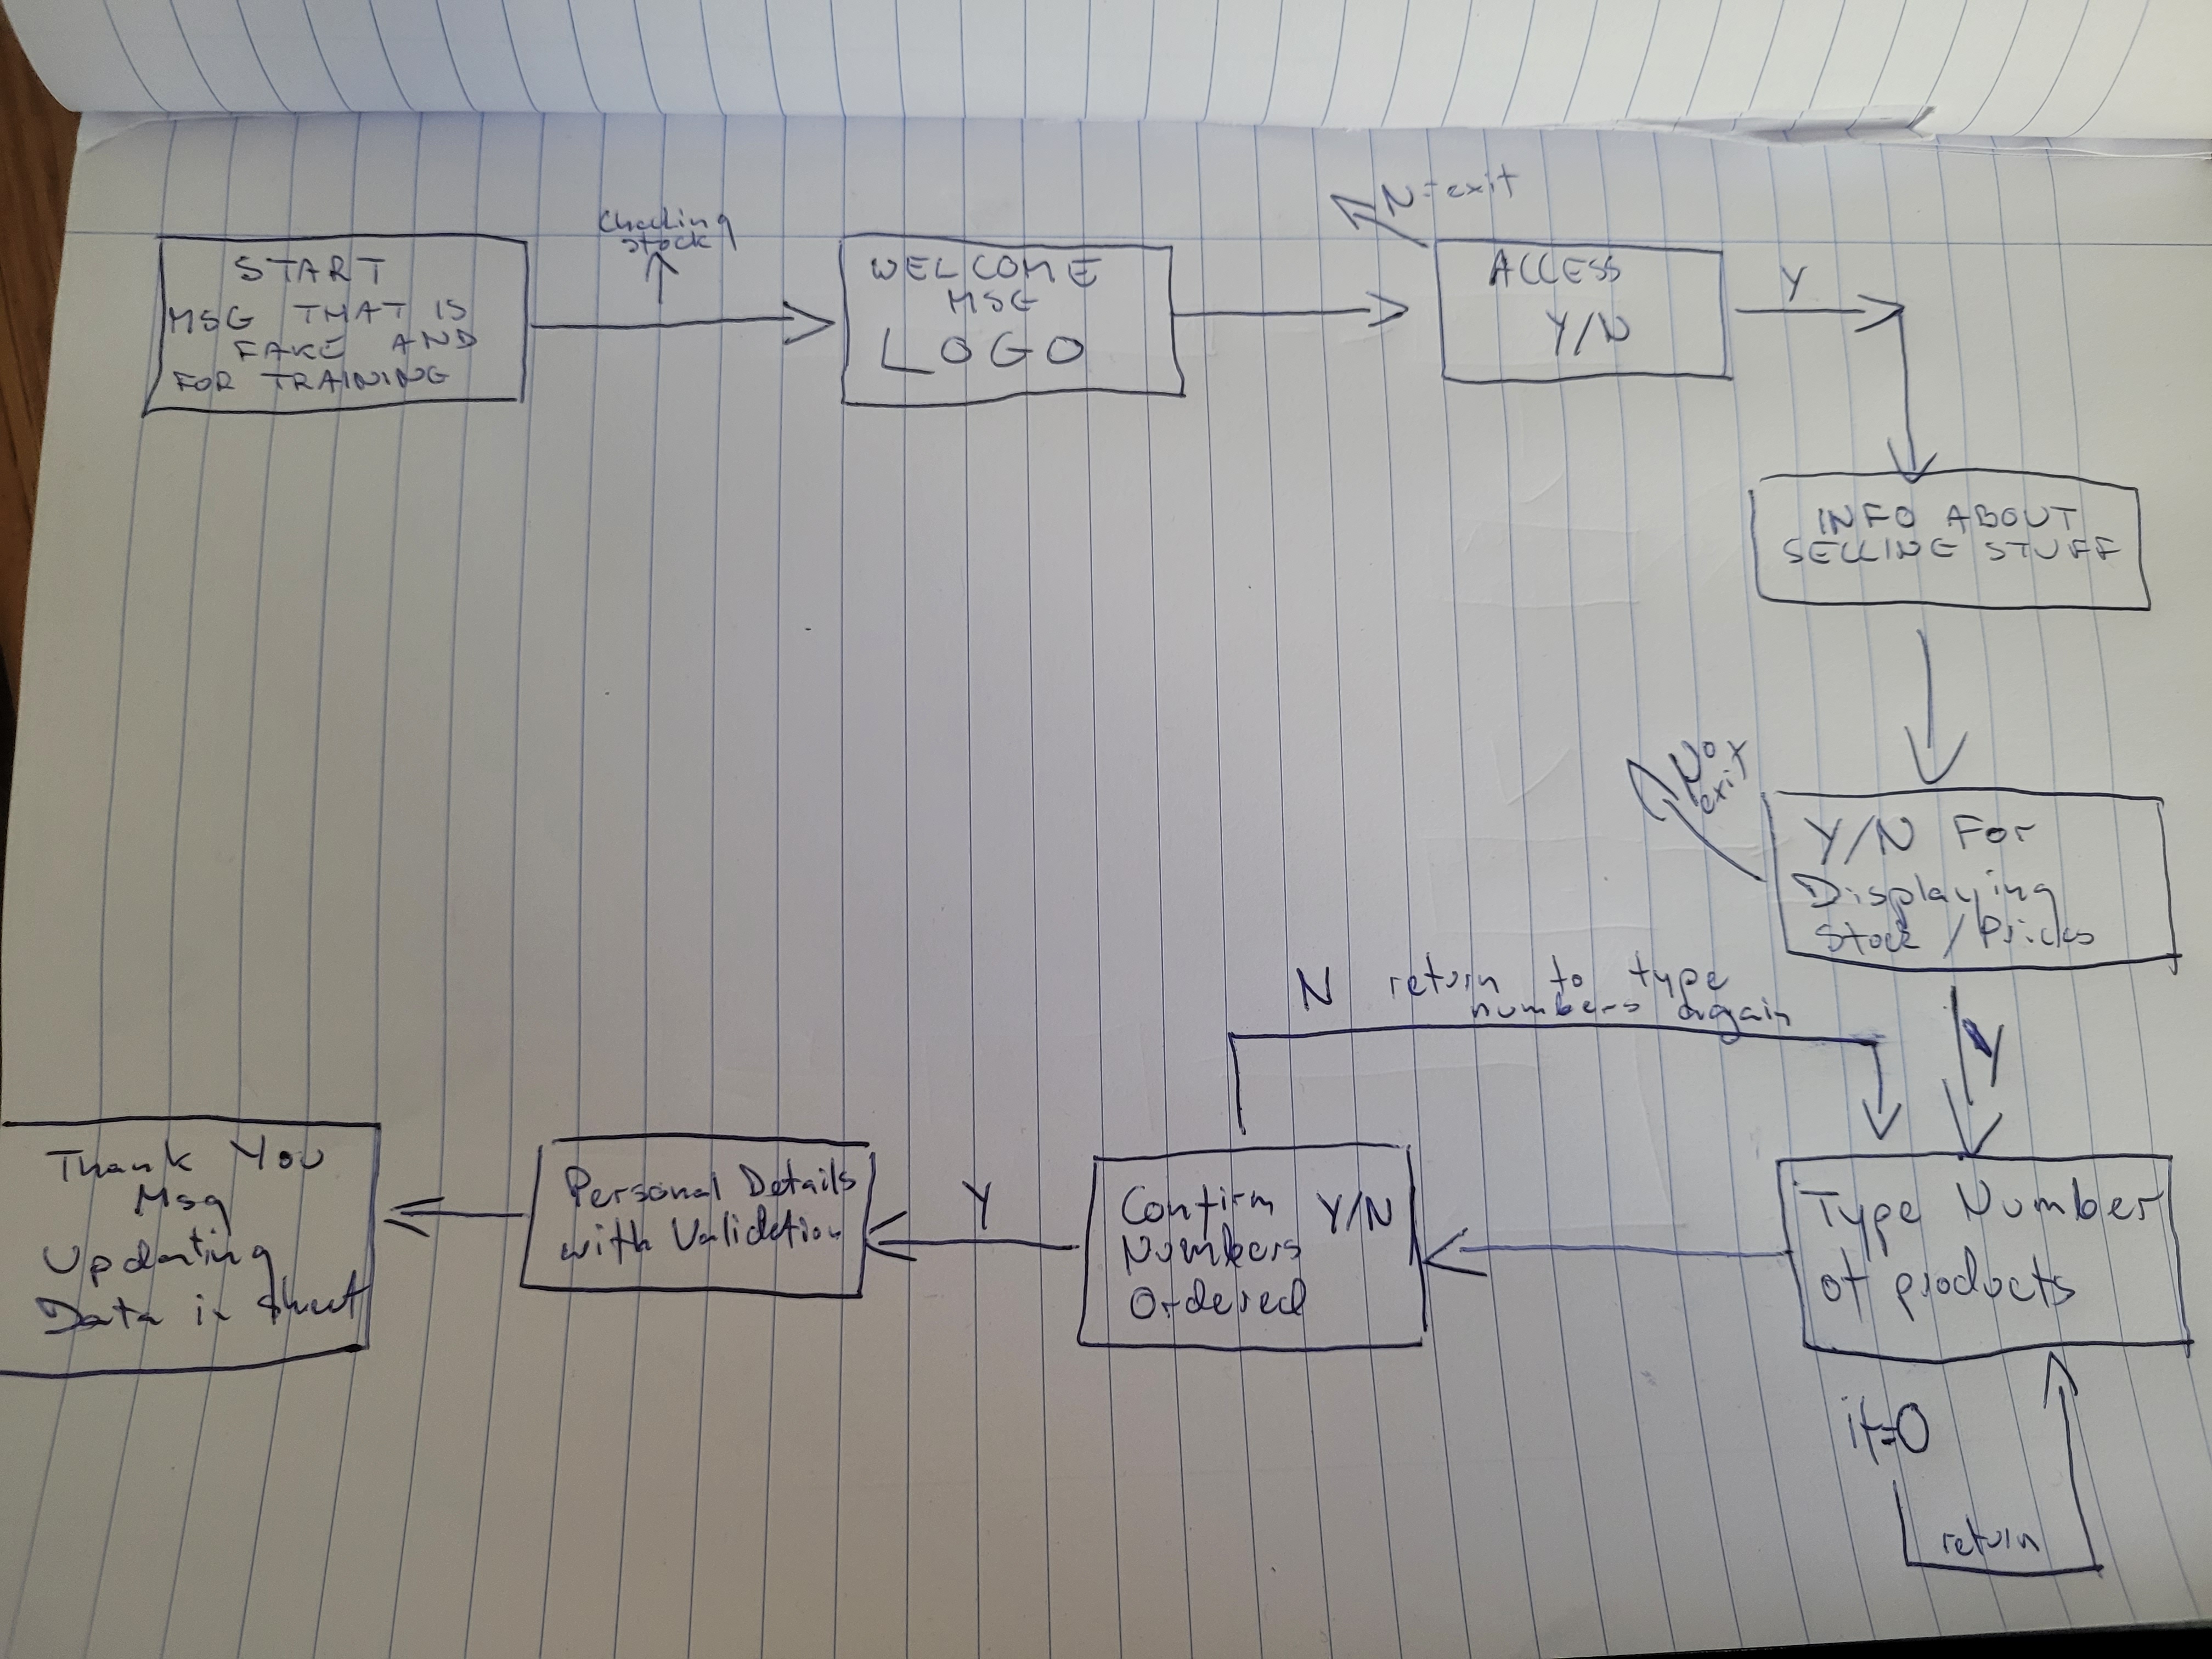 START
MSG THAT IS
FAKE AND
FOR TRAINING
Checking
stock
WELCOME
MSG
LOGO
N=exit
ACCESS
Y/N
Y
INFO ABOUT
SELLING STUFF
No
exit
Y/N For
Displaying
Stock / Prices
Y
N return to type
numbers again
Type Number
of products
if=0
return
Confirm Y/N
Numbers
Ordered
Y
Personal Details
with Validation
Thank You
Msg
Updating
Data in Sheet